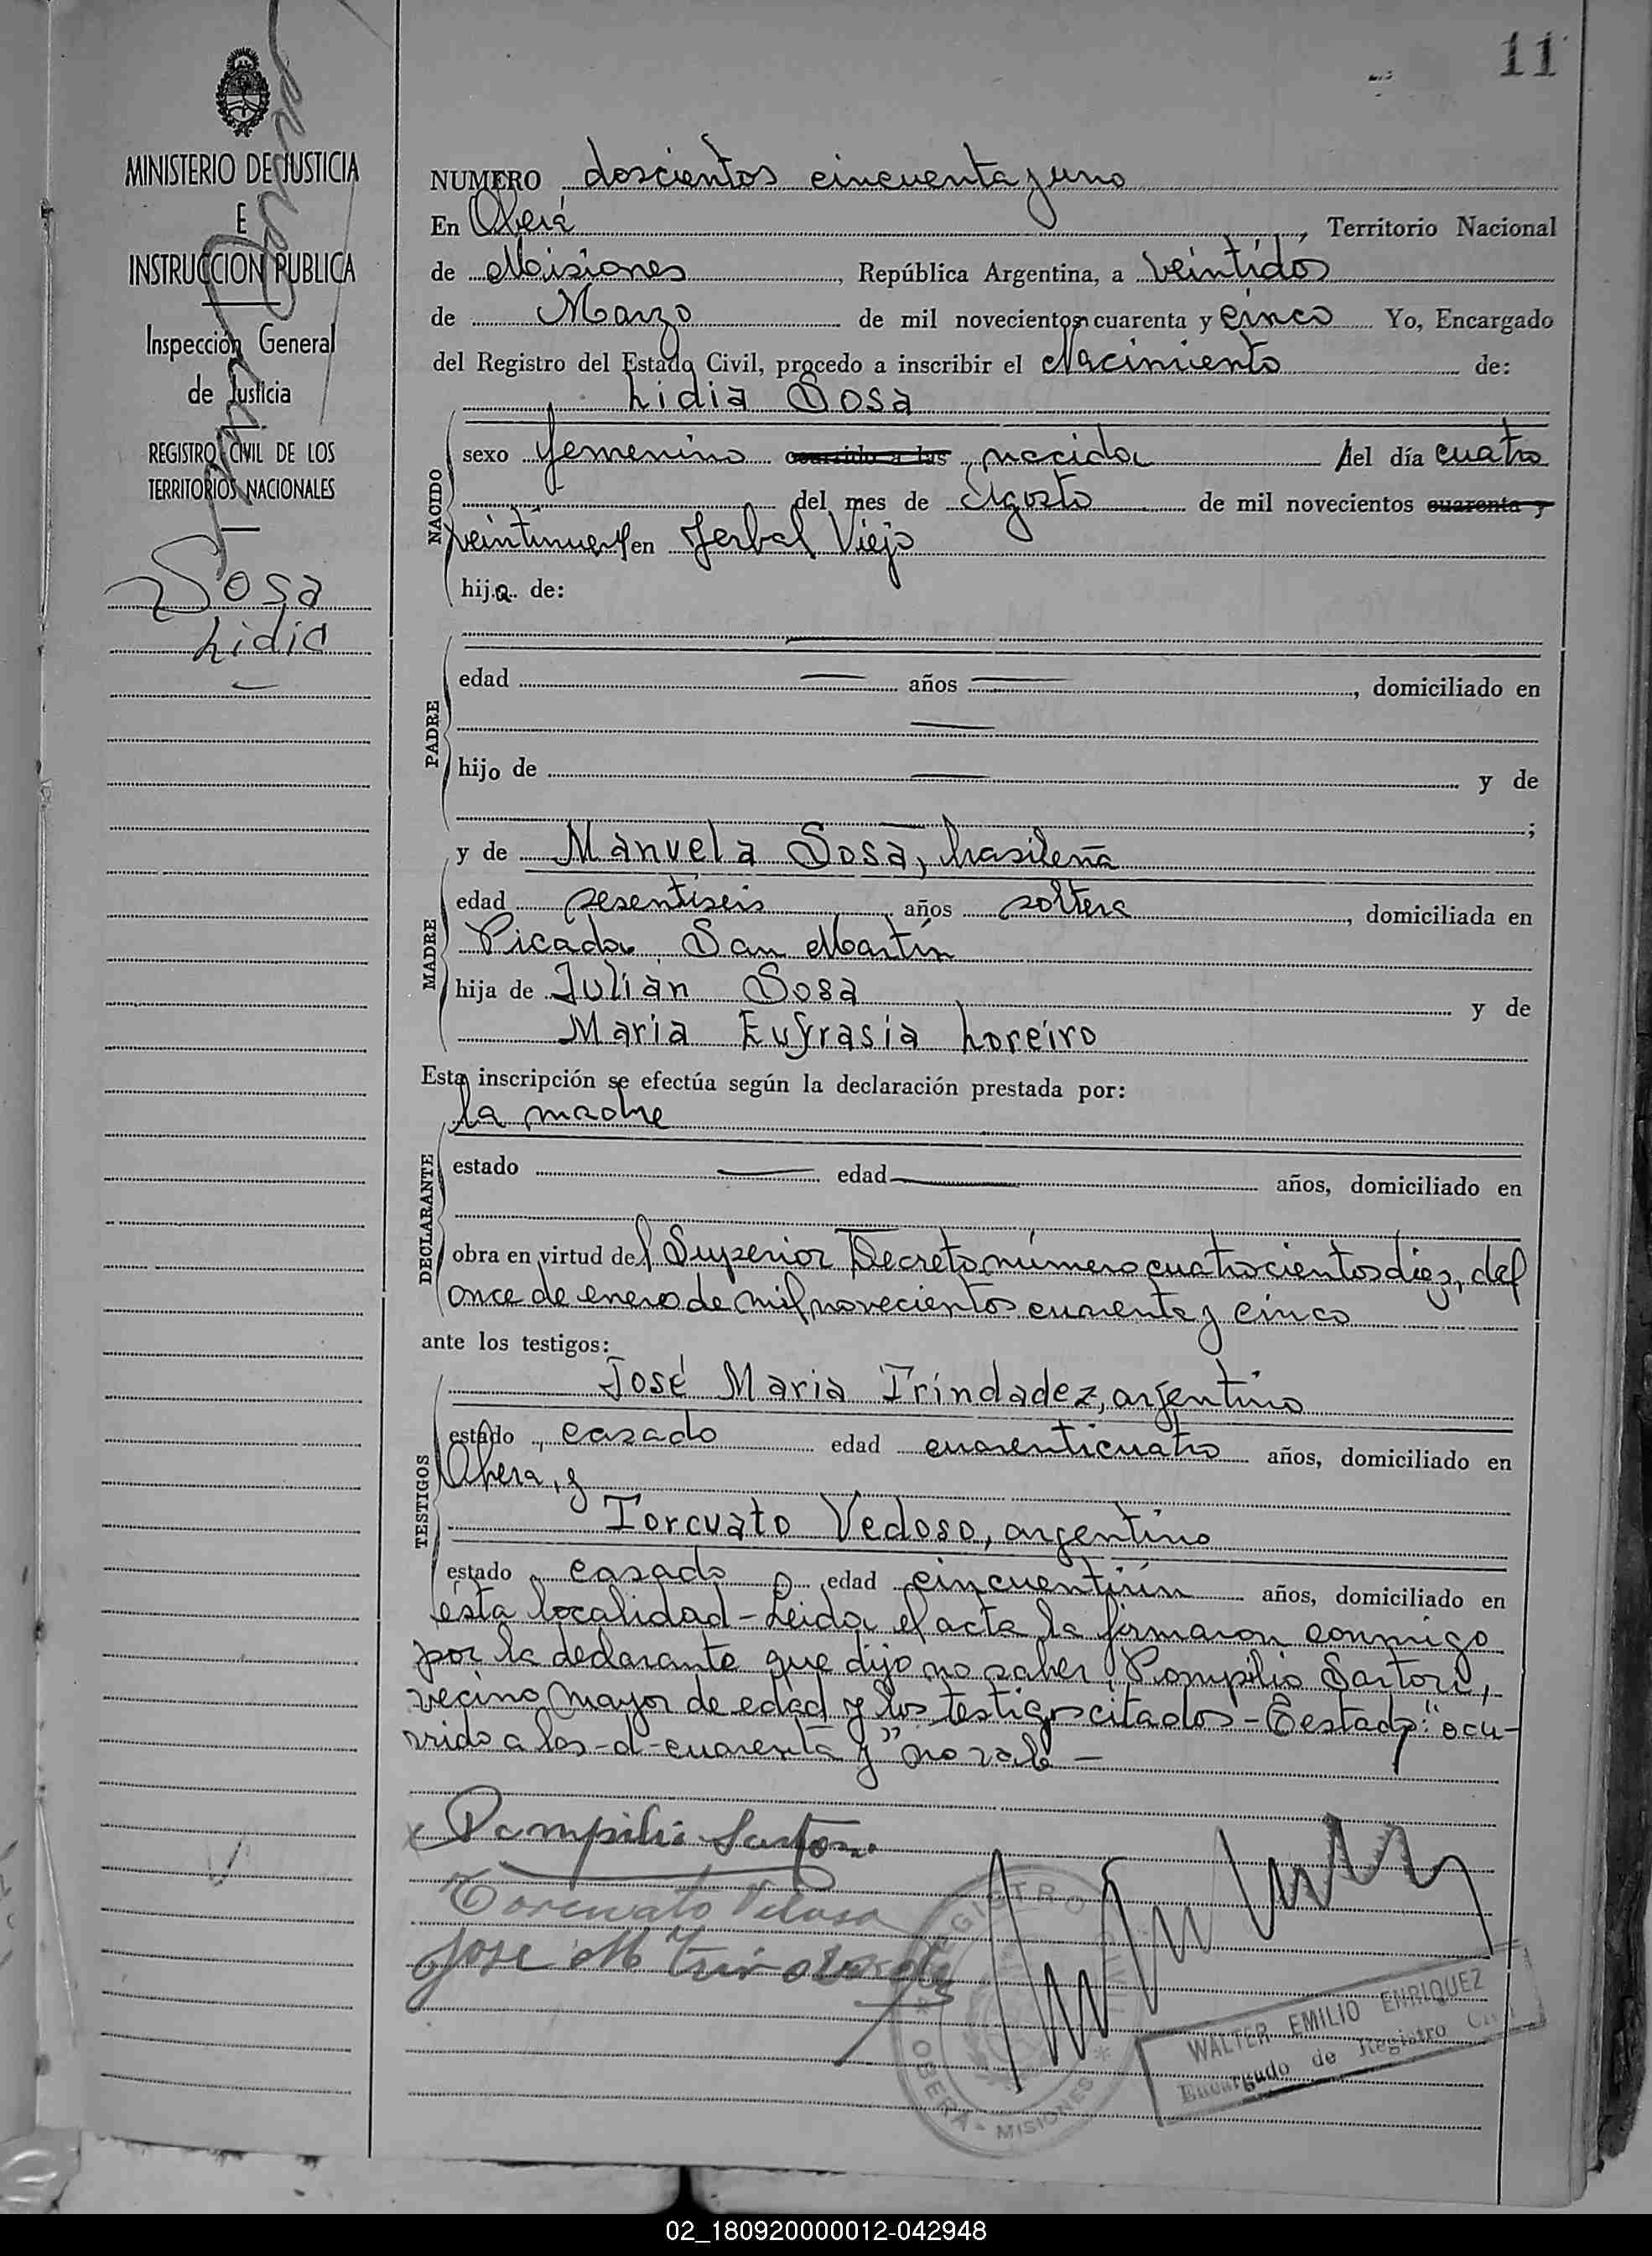 11
MINISTERIO DE JUSTICIA
E
INSTRUCCION PUBLICA
Inspección General
de Justicia
REGISTRO CIVIL DE LOS
TERRITORIOS NACIONALES
Sosa
Lidia
NUMERO doscientos cincuenta y uno
En Oberá, Territorio Nacional
de Misiones, República Argentina, a veintidos
de Marzo de mil novecientos cuarenta y cinco Yo, Encargado
del Registro del Estado Civil, procedo a inscribir el Nacimiento de:
Lidia Sosa
NACIDO
sexo femenino ocurrido a las nacida el día cuatro
del mes de Agosto de mil novecientos cuarenta y
veintinueve en Yerbal Viejo
hija de:
PADRE
edad años, domiciliado en
hijo de y de
;
MADRE
y de Manuela Sosa, brasileña
edad sesentiseis años soltera, domiciliada en
Picada San Martín
hija de Julián Sosa y de
Maria Eufrasia Loreiro
Esta inscripción se efectúa según la declaración prestada por:
la madre
DECLARANTE
estado edad años, domiciliado en
obra en virtud del Superior Decreto número cuatrocientos diez, del
once de enero de mil novecientos cuarenta y cinco
ante los testigos:
TESTIGOS
José Maria Trindadez, argentino
estado casado edad cuarenticuatro años, domiciliado en
Obera, y
Torcuato Vedoso, argentino
estado casado edad cincuentiún años, domiciliado en
ésta localidad - Leida el acta la firmaron conmigo
por la declarante que dijo no saber Pompilio Sartori,
vecino mayor de edad y los testigos citados - Testado: "ocu-
rrido a las - d - cuarenta y" no vale -
Pompilio Sartori
Torcuato Veloso
Jose M Trindadez
REGISTRO CIVIL
OBERA - MISIONES
WALTER EMILIO ENRIQUEZ
Encargado de Registro Civil
02_180920000012-042948